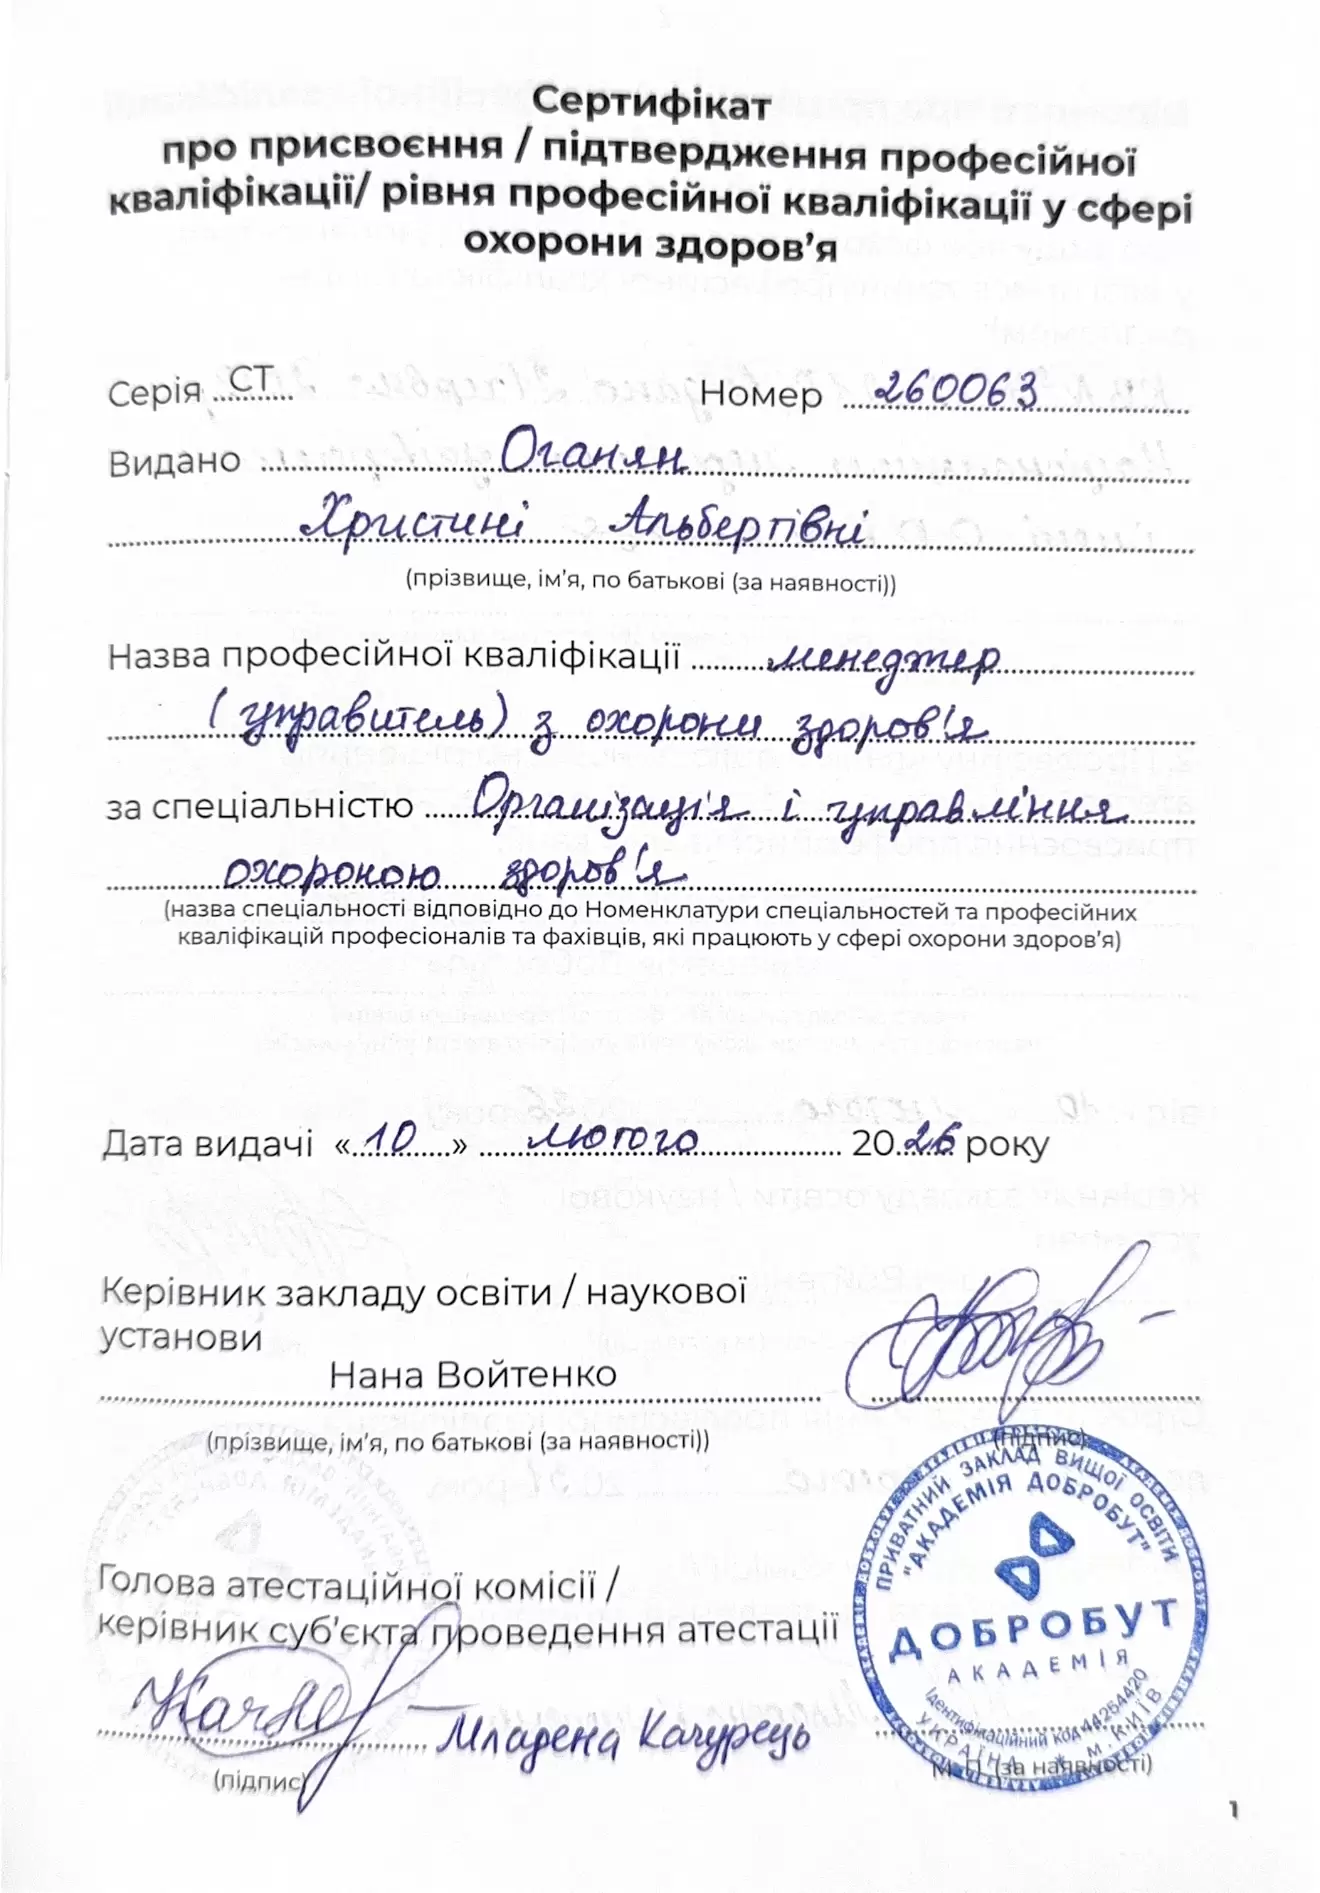 Сертифікат
про присвоєння / підтвердження професійної
кваліфікації/ рівня професійної кваліфікації у сфері
охорони здоров’я
Серія СТ Номер 260063
Видано Оганян
Христині Альбертівні
(прізвище, ім’я, по батькові (за наявності))
Назва професійної кваліфікації менеджер
(управитель) з охорони здоров'я
за спеціальністю Організація і управління
охороною здоров'я
(назва спеціальності відповідно до Номенклатури спеціальностей та професійних
кваліфікацій професіоналів та фахівців, які працюють у сфері охорони здоров’я)
Дата видачі «10» лютого 2026 року
Керівник закладу освіти / наукової
установи
Нана Войтенко
(прізвище, ім’я, по батькові (за наявності))
(підпис)
ПРИВАТНИЙ ЗАКЛАД ВИЩОЇ ОСВІТИ
"АКАДЕМІЯ ДОБРОБУТ"
ДОБРОБУТ
АКАДЕМІЯ
Ідентифікаційний код 44254420
УКРАЇНА * м.КИЇВ
Голова атестаційної комісії /
керівник суб’єкта проведення атестації
Младена Качурець
(підпис)
М. П. (за наявності)
1